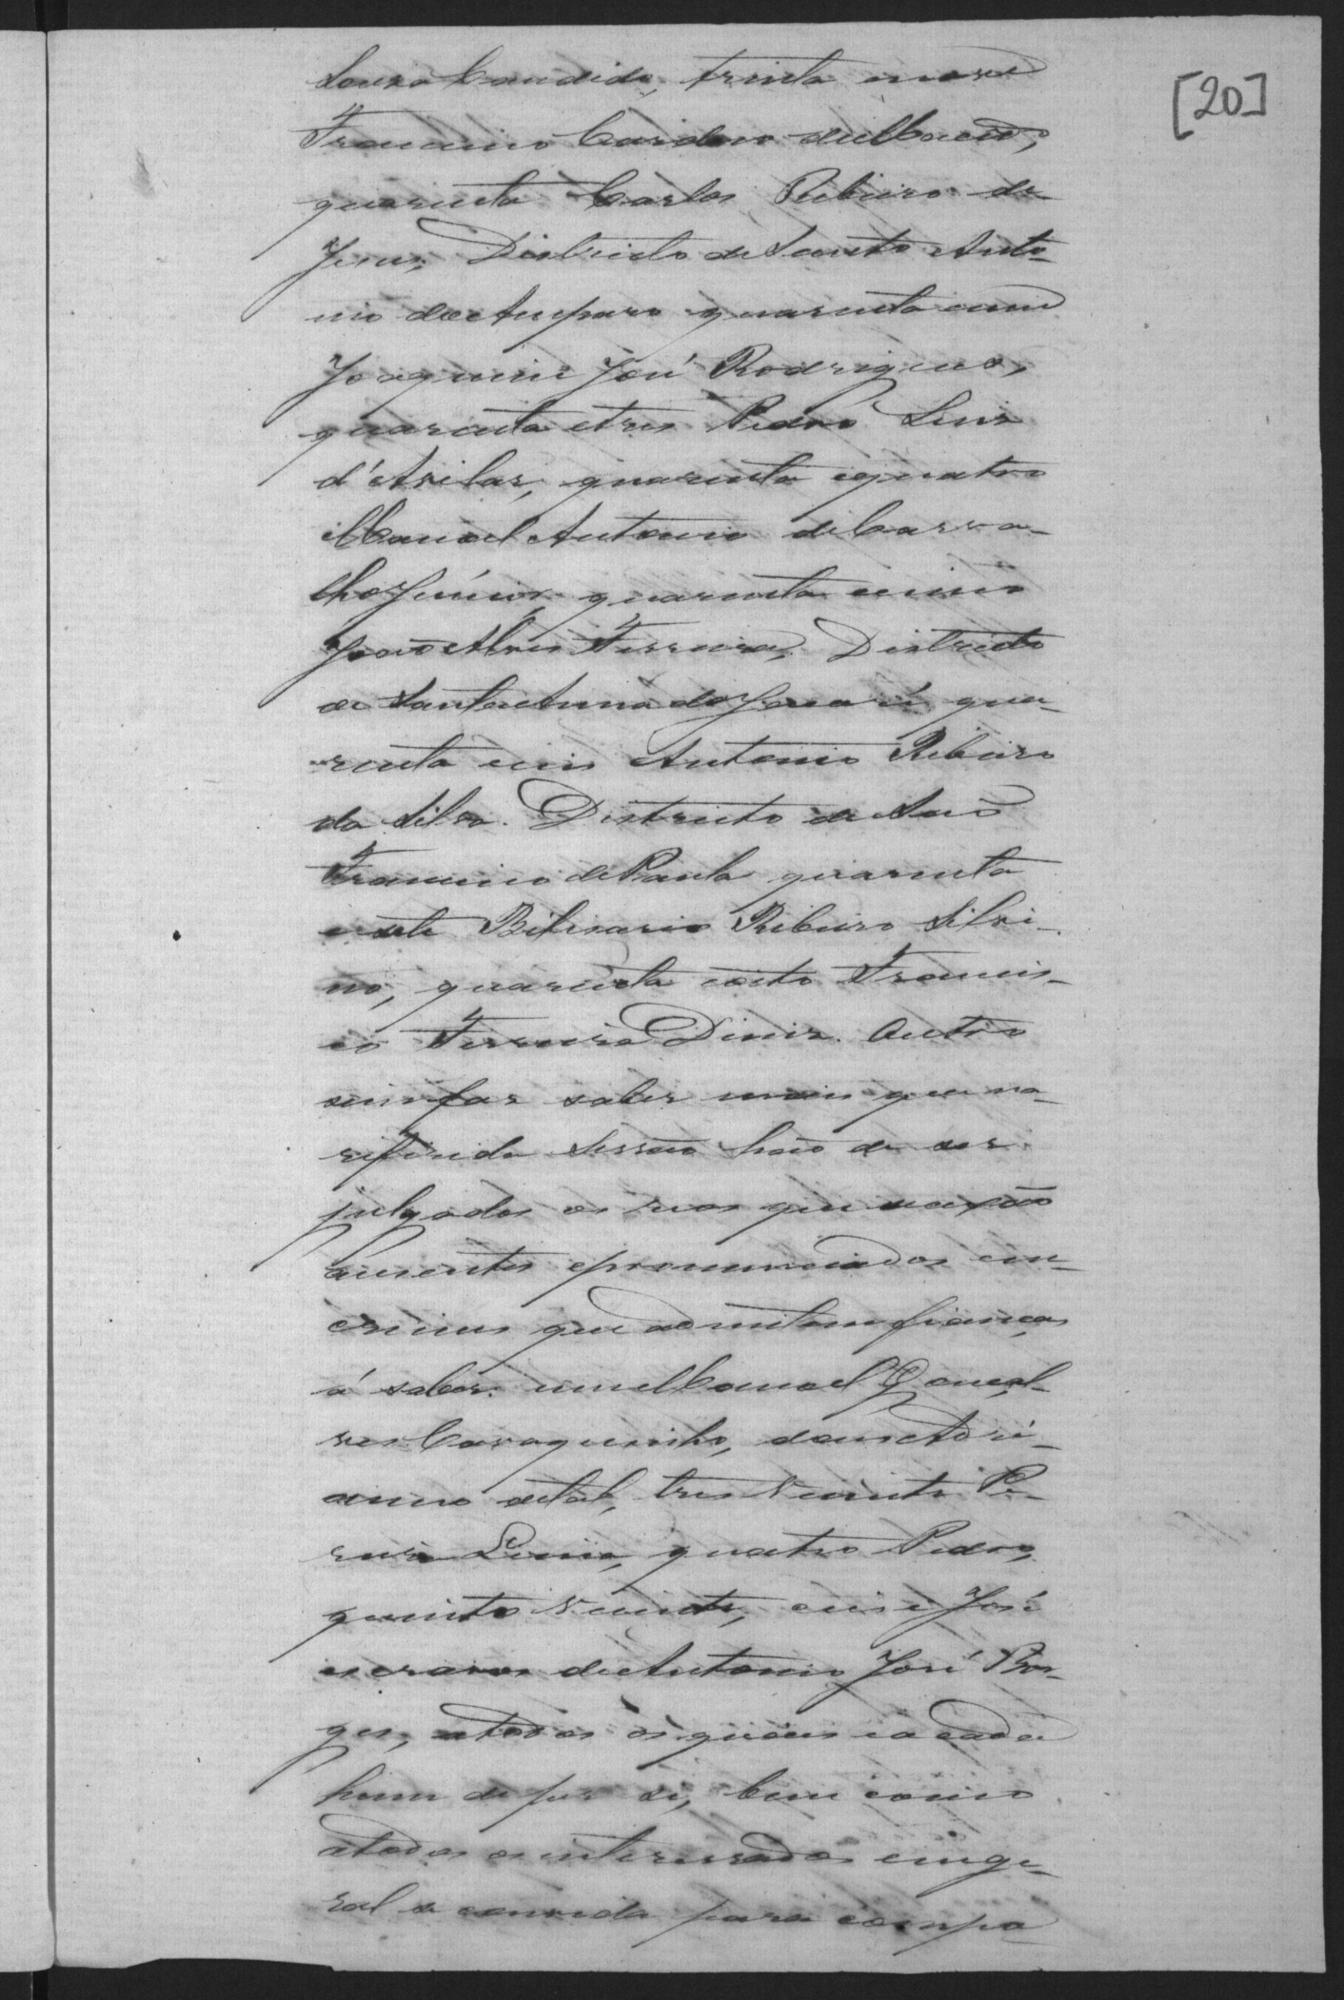 [20]
Souza Candido, trinta enove
Francisco Cardoso de Macedo,
quarenta Carlos Ribeiro de
Jesus, Districto de Santo Anto-
nio do Amparo quarenta eum
Joaquim José Rodrigues,
quarenta etres Pedro Luis
d'Avilar, quarenta equatro
Manoel Antonio de Carva-
lho Junior, quarenta ecinco
João Alves Ferreira, Districto
de Santa Anna do Jacaré qua-
renta eseis Antonio Ribeiro
da Silva. Districto de São
Francisco de Paula quarenta
esete Belisario Ribeiro Silvi-
no, quarenta eoito Francis-
co Ferreira Diniz. Outro
sim faz saber mais que na
referida Sessão hão de ser
julgados os reos que
ausentes epronunciados em
crimes que admittem fiança
á saber. um Manoel Gonçal-
ves, dous Adri-
anno detal, tres Vicente Pe-
reira Lima, quatro Pedro,
quinto Vicente, eseis José
escravos de Antonio José Bor-
ges, atodos os quaes ea cada
hum de per si, bem como
atodos os interessados emge-
ral se convida para compa